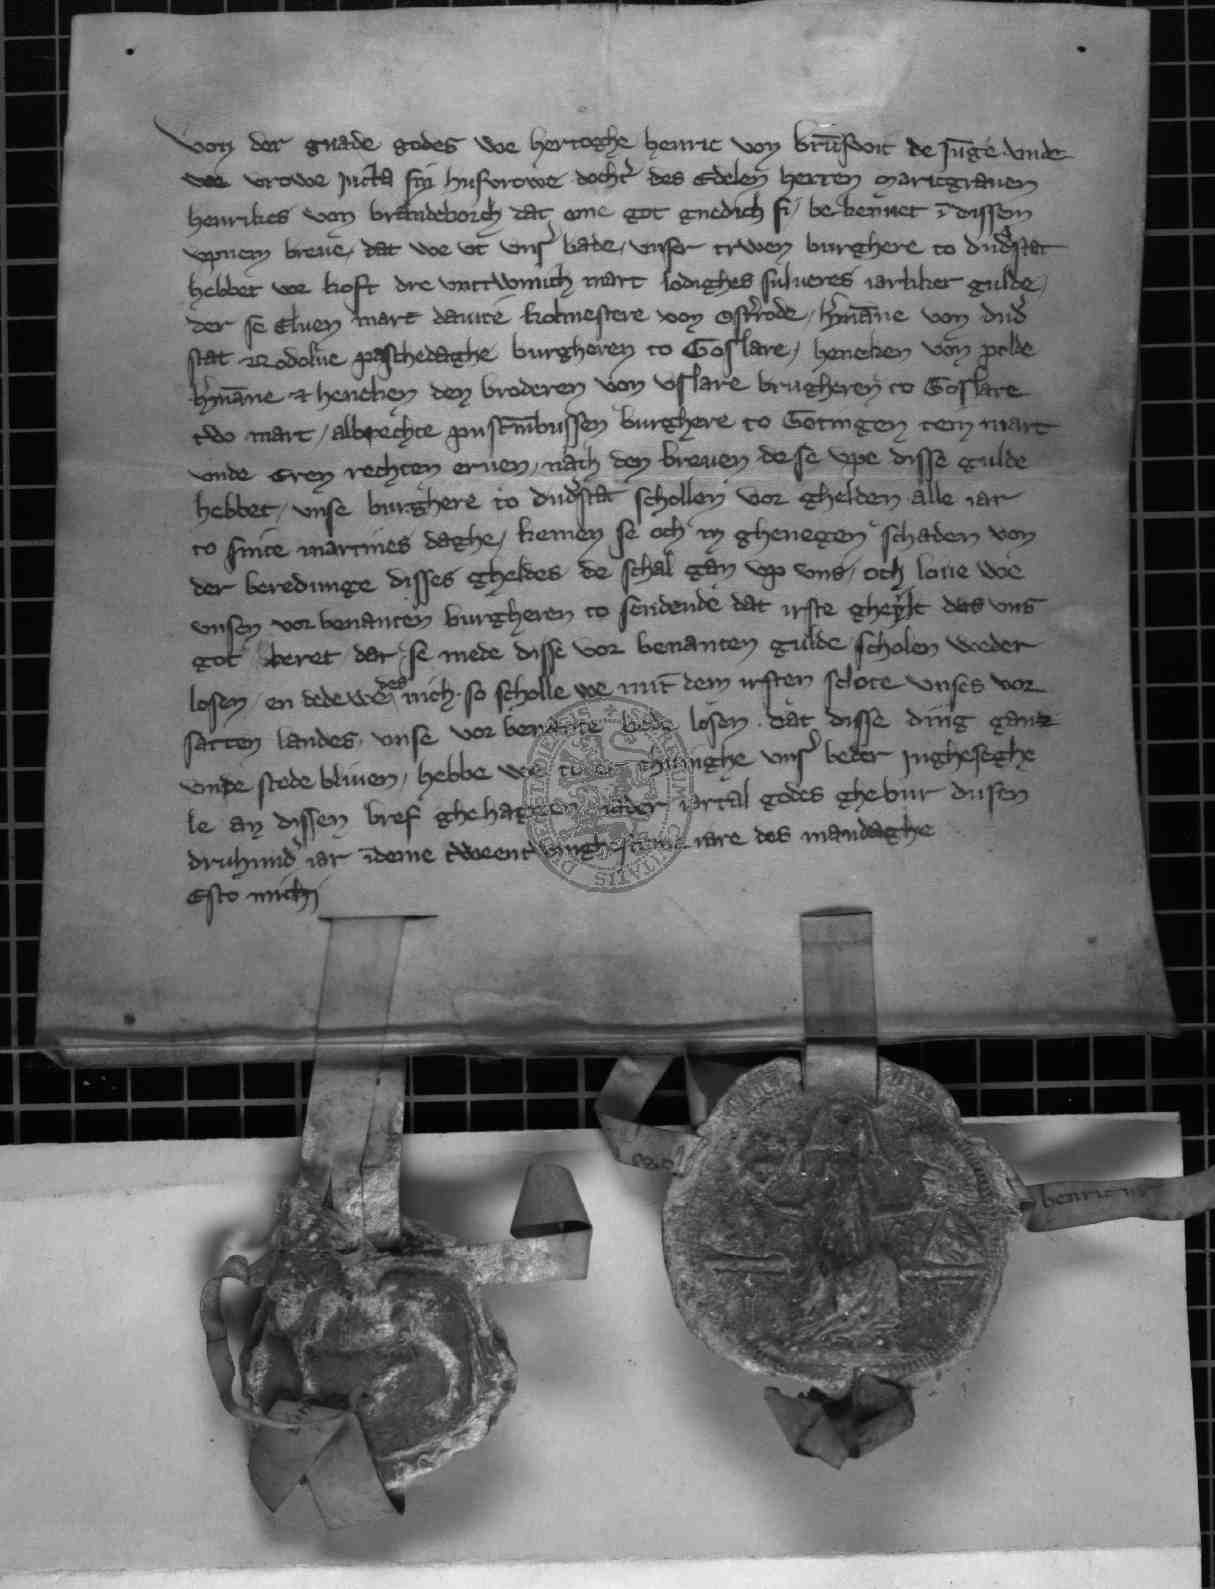 Von der gnade godes we hertoghe henric von brūswic de iu̅ge vnde
we vrowe Jutta sin husvrowe dochtˀ des Edelen herren marcgrauen
henrikes von brandeborch dat eme got gnedich si / be kennet ī dissem
openem breue / dat we vt vnsˀ bade / vnser trwen burghere to dudˀstat
hebbet vor koft dre vnttwintich marc lodighes sulueres iarliker gulde /
der se Eluen marc dauite kolmestere von Ostˀrode / hˀmāne von dudˀ
stat Rodolue paschedaghe burgheren to Goslare / heneken von polde
hˀmāne & heneken den broderen von vslare brugheren to Goslare
two marc / albrechte bussen burghere to Gotingen tem marc
vnde eren rechten eruen / nach den breuen de se vpe disse gulde
hebbet / vnse burghere to dudˀstat schollen vor ghelden alle iar
to sinte martines daghe / kemen se och in ghenegen schaden von
der beredunge disses gheldes de schal gan vp vns / och loue we
vnsen vor benanten burgheren to sendende dat irste ghelt das vns
got beret / dar se mede disse vor benanten gulde scholen weder
losen / en dede we des nich · so scholle we mit dem irsten slote vnses vor
satten landes / vnse vor benante losen · dat disse ding ganz
vnde stede bliuen / hebbe we vnsˀ beder Jngheseghe
le an dissen bref ghehangen iartal godes ghebur dusen
druhundˀ iar īdeme tweent iare des mandaghe
Esto michi
henricus